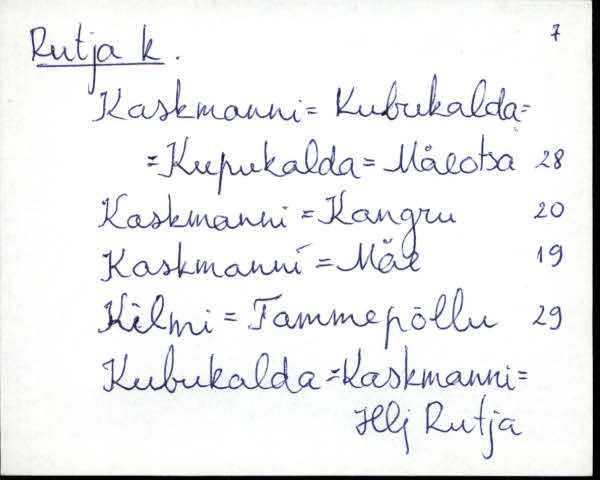 Rutja k. 7
Kaskmanni = Kubukalda =
= Kupukalda = Mäeotsa 28
Kaskmanni = Kangru 20
Kaskmanni = Mäe 19
Kilmi = Tammepõllu 29
Kubukalda = Kaskmanni =
Hlj Rutja